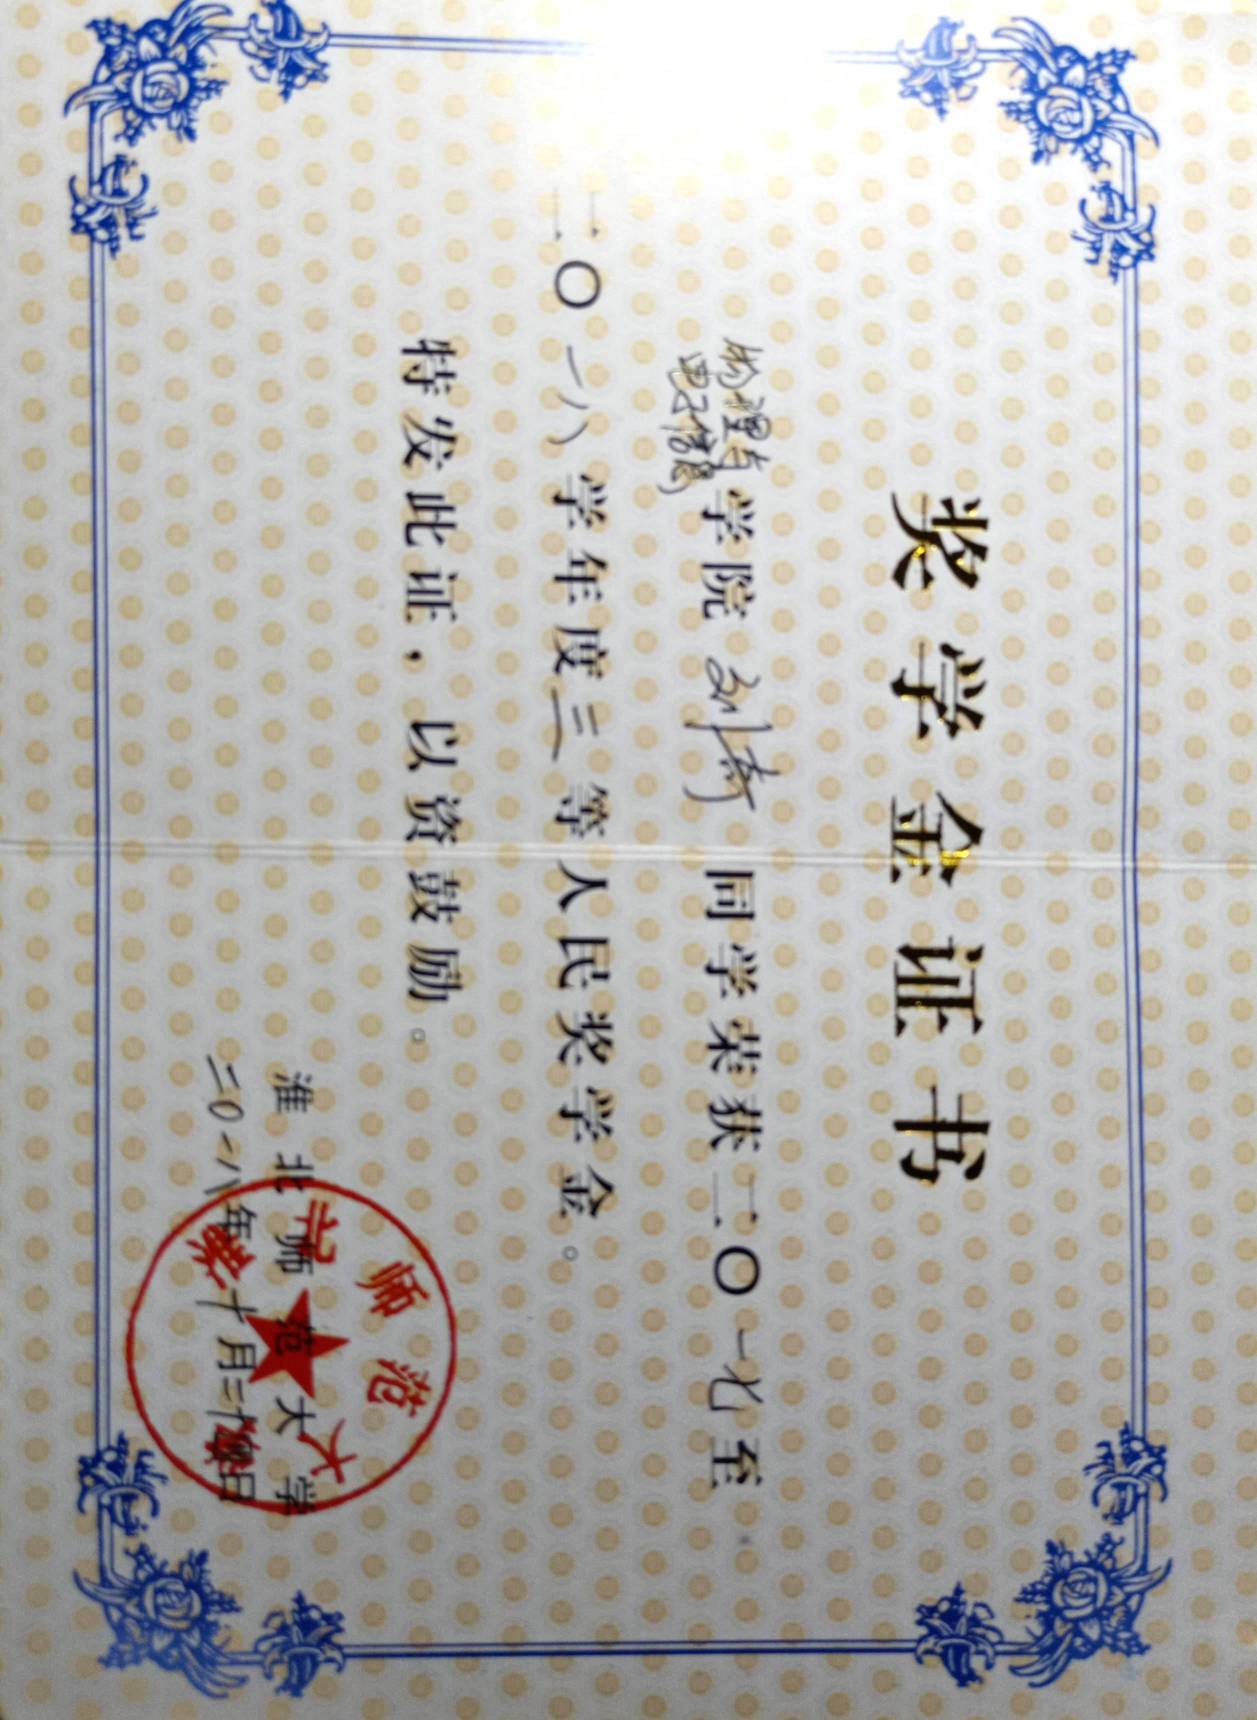 奖学金证书
物理与
电子信息学院 刘奇 同学荣获二〇一七至
二〇一八学年度三等人民奖学金。
特发此证，以资鼓励。
淮北师范大学
淮北师范大学
二〇一八年十月二十四日